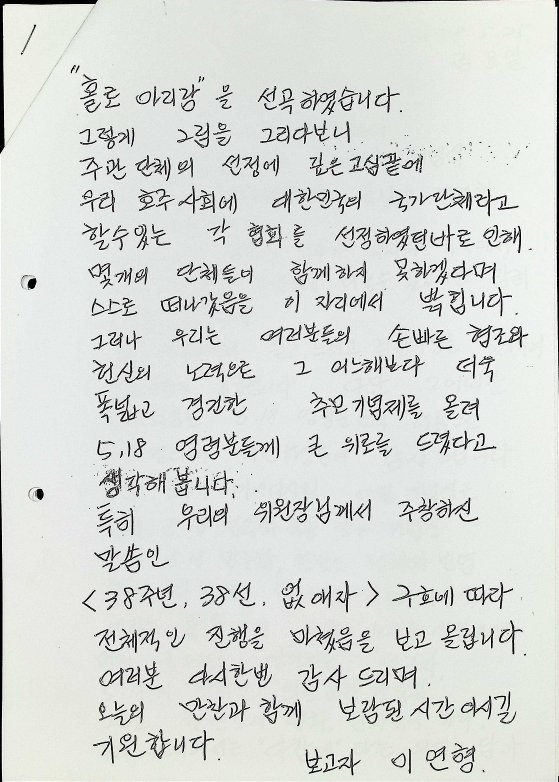 "홀로 아리랑"을 선곡하였습니다.
그렇게 그림을 그리다보니
주관단체의 선정에 깊은 고심끝에
우리 호주사회에 대한민국의 국가단체라고
할수있는 각 협회를 선정하였던바로 인해
몇개의 단체들이 함께하지 못하겠다며
스스로 떠나갔음을 이 자리에서 밝힙니다.
그러나 우리는 여러분들의 손빠른 협조와
헌신의 노력으로 그 어느해보다 더욱
폭넓고 경건한 추모기념제를 올려
5,18 영령분들께 큰 위로를 드렸다고
생각해 봅니다.
특히 우리의 위원장님께서 주창하신
말씀인
<38주년, 38선, 없애자> 구호에 따라
전체적인 진행을 마쳤음을 보고 올립니다.
여러분 다시한번 감사 드리며.
오늘의 만찬과 함께 보람된 시간이시길
기원합니다.
보고자 이 연형.